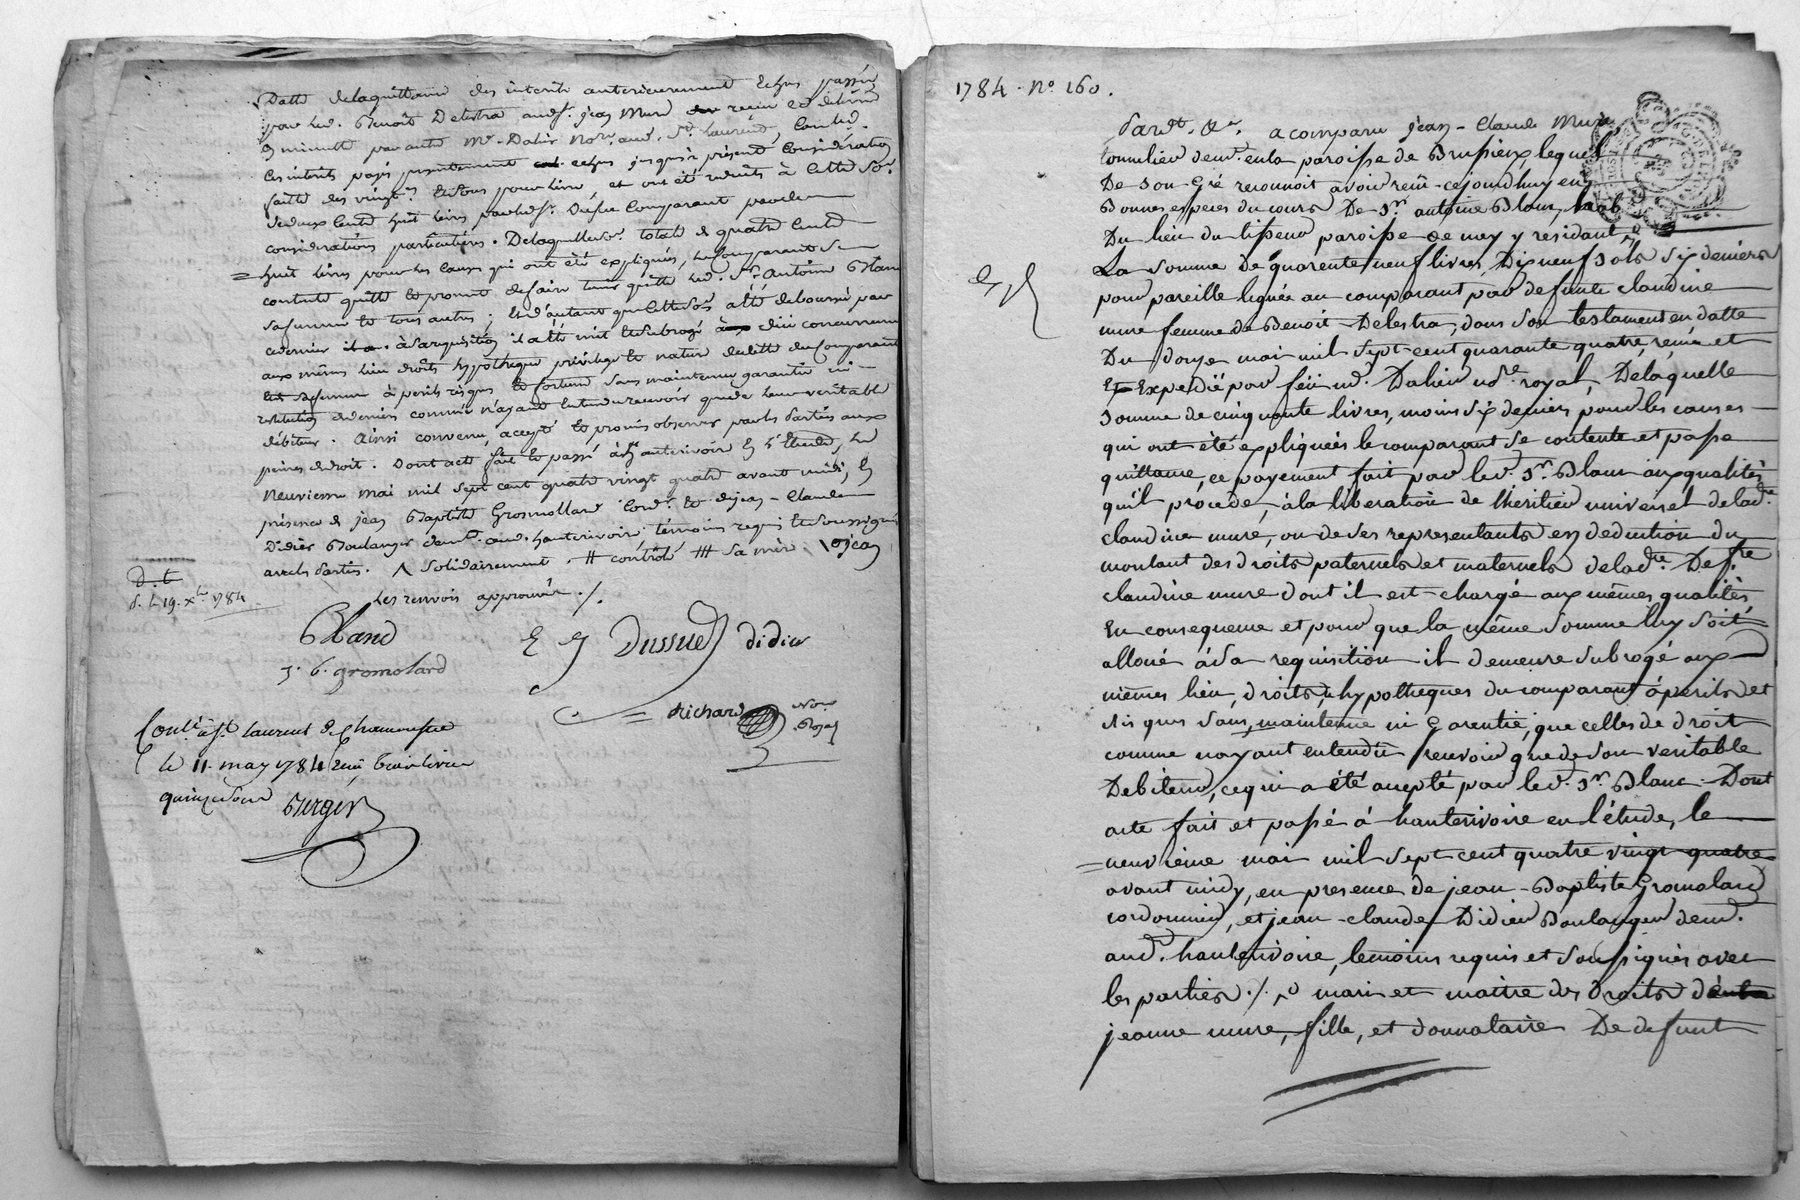 Datte delaquittance des interets anterieurement echus passée
pour led. Benoit Delestra aud. jean Mure recue et delivré
en minutte par autre Me. Dalier Nore. aud. St. laurend,
les interets payés jusques à présent consideration
faitte des vingt.es et sous pour livre, et ont été reduits à cette So.e
dedeux Cents huit livres
considérations particulières. Delaquelle So.e total de quatre Cents
huit livres pour les causes qui ont été expliqués, le Comparant se
contente quitte et promet defaire tenir quitte led. Sr. antoine Blanc
et tous autres; Et d'autant que cette So.e a été deboursée par
cedernier à sa requisition il a été mis et subrogé
aux mêmes lieu droits hypotheque privilege et nature de dette du Comparant
à perils risques et fortune sans maintenue garantie ni
restitution de deniers comme n'ayant entendu recevoir que de leur veritable
débiteur. Ainsi convenu, accepté et promis observer par les Parties aux
peines de droit. Dont acte fait et passé à hauterivoire En l'Etude, Le
Neuvieme mai mil sept cent quatre vingt quatre avant midi, En
présence de jean Baptiste Gromollard Cord.r et de jean-Claude
Didier Boulanger dem.t aud. hauterivoire, témoins requis et soussignés
avec les Parties. solidairement. # contrôlé ## sa mère
les renvois approuvés ./.
19. Xbre 1784
Blanc
Dussud
didier
J. B. gromolard
Richard
Nore
Royal
Conté. à St. laurent de Chamousset
le 11. may 1784 recu trois livres
quinze sols Berger
1784. No. 160.
Pardt. &a. a comparu jean-Claude Mure
tonnelier demt. en la paroisse de Brussieu lequel
De son Gré reconnoit avoir reçu cejourdhuy en
Bonnes especes du cours De Sr. antoine Blanc, hab.
Du lieu du tisseur paroisse de y residant
La somme de quarente neuf livres, Dix neuf sols six deniers
pour pareille leguée au comparant par defunte claudine
mure femme de Benoit Delestra, dans son testament en datte
Du douze mai mil sept-cent quarante quatre, remis et
Expedié par feu Me. Dalier nore. royal, Delaquelle
somme de cinquante livres, moins six deniers pour les causes
qui ont été expliqueés le comparant se contente et passe
quittance, ce payement fait par led. Sr. Blanc aux qualités
qu'il procede, à la liberation de lheritier universel delade.
claudine mure, ou de ses representants en deduction du
montant des droits paternels et maternels delade. Defte.
claudine mure dont il est chargé aux mêmes qualités,
En consequence et pour que la même somme luy soit
alloué à sa requisition il demeure subrogé aux
mêmes lieu, droits, hypotheques du comparant à perils et
risques sans maintenue ni Garentie, que celles de droit
comme nayant entendu recevoir que de son veritable
Debiteur, ce qui a été accepté par led. Sr. Blanc. Dont
acte fait et passé à hauterivoire en l'étude, le
neuvième mai mil sept cent quatre vingt quatre
avant midy, en presence de jean-Baptiste Gromolard
cordonnier, et jean-claude Didier Boulanger demt.
aud. hauterivoire, temoins requis et soussignés avec
les parties ./. mari et maitre des droits de
jeanne mure, fille, et donnataire De defunt